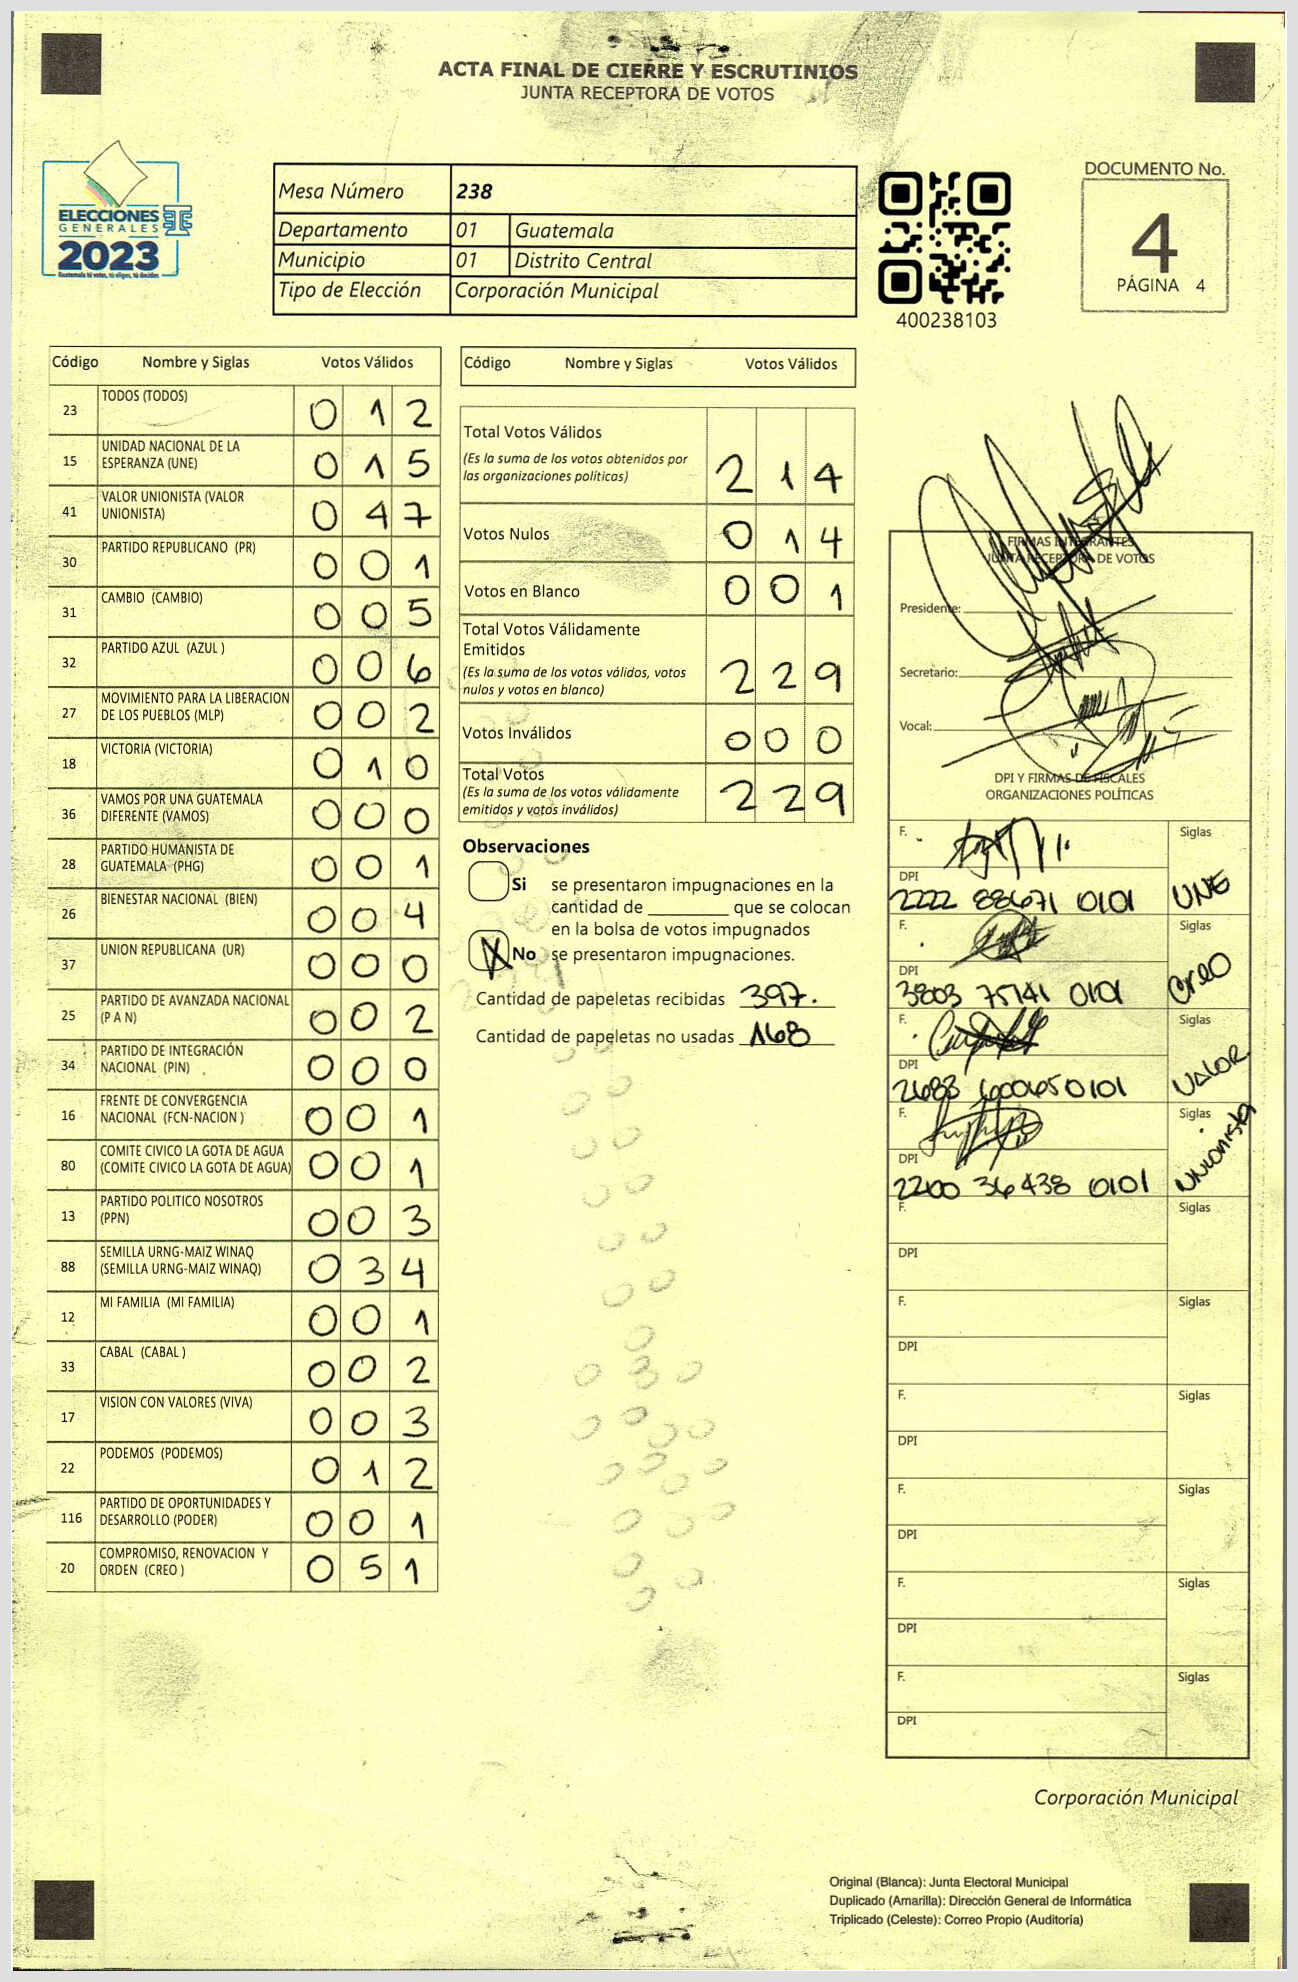 ACTA FINAL DE CIERRE Y ESCRUTINIOS
JUNTA RECEPTORA DE VOTOS
ELECCIONES
GENERALES
2023
Guatemala tú votas, tú eliges, tú decides
Mesa Número 238
Departamento 01 Guatemala
Municipio 01 Distrito Central
Tipo de Elección Corporación Municipal
400238103
DOCUMENTO No.
4
PÁGINA 4
Código Nombre y Siglas Votos Válidos
23 TODOS (TODOS) 0 1 2
15 UNIDAD NACIONAL DE LA ESPERANZA (UNE) 0 1 5
41 VALOR UNIONISTA (VALOR UNIONISTA) 0 4 7
30 PARTIDO REPUBLICANO (PR) 0 0 1
31 CAMBIO (CAMBIO) 0 0 5
32 PARTIDO AZUL (AZUL ) 0 0 6
27 MOVIMIENTO PARA LA LIBERACION DE LOS PUEBLOS (MLP) 0 0 2
18 VICTORIA (VICTORIA) 0 1 0
36 VAMOS POR UNA GUATEMALA DIFERENTE (VAMOS) 0 0 0
28 PARTIDO HUMANISTA DE GUATEMALA (PHG) 0 0 1
26 BIENESTAR NACIONAL (BIEN) 0 0 4
37 UNION REPUBLICANA (UR) 0 0 0
25 PARTIDO DE AVANZADA NACIONAL (P A N) 0 0 2
34 PARTIDO DE INTEGRACIÓN NACIONAL (PIN) 0 0 0
16 FRENTE DE CONVERGENCIA NACIONAL (FCN-NACION ) 0 0 1
80 COMITE CIVICO LA GOTA DE AGUA (COMITE CIVICO LA GOTA DE AGUA) 0 0 1
13 PARTIDO POLITICO NOSOTROS (PPN) 0 0 3
88 SEMILLA URNG-MAIZ WINAQ (SEMILLA URNG-MAIZ WINAQ) 0 3 4
12 MI FAMILIA (MI FAMILIA) 0 0 1
33 CABAL (CABAL ) 0 0 2
17 VISION CON VALORES (VIVA) 0 0 3
22 PODEMOS (PODEMOS) 0 1 2
116 PARTIDO DE OPORTUNIDADES Y DESARROLLO (PODER) 0 0 1
20 COMPROMISO, RENOVACION Y ORDEN (CREO ) 0 5 1
Código Nombre y Siglas Votos Válidos
Total Votos Válidos
(Es la suma de los votos obtenidos por
las organizaciones políticas) 2 1 4
Votos Nulos 0 1 4
Votos en Blanco 0 0 1
Total Votos Válidamente
Emitidos
(Es la suma de los votos válidos, votos
nulos y votos en blanco) 2 2 9
Votos Inválidos 0 0 0
Total Votos
(Es la suma de los votos válidamente
emitidos y votos inválidos) 2 2 9
Observaciones
Si se presentaron impugnaciones en la
cantidad de ________ que se colocan
en la bolsa de votos impugnados
X No se presentaron impugnaciones.
Cantidad de papeletas recibidas 397.
Cantidad de papeletas no usadas 168
FIRMAS INTEGRANTES
JUNTA RECEPTORA DE VOTOS
Presidente:
Secretario:
Vocal:
DPI Y FIRMAS DE FISCALES
ORGANIZACIONES POLÍTICAS
F. Siglas
DPI
2222 88671 0101 UNE
F. Siglas
DPI
3803 75141 0101 creo
F. Siglas
DPI
2683 60065 0101 VALOR
F. Siglas
DPI
2200 36438 0101 unionista
F. Siglas
DPI
F. Siglas
DPI
F. Siglas
DPI
F. Siglas
DPI
F. Siglas
DPI
F. Siglas
DPI
Corporación Municipal
Original (Blanca): Junta Electoral Municipal
Duplicado (Amarilla): Dirección General de Informática
Triplicado (Celeste): Correo Propio (Auditoría)